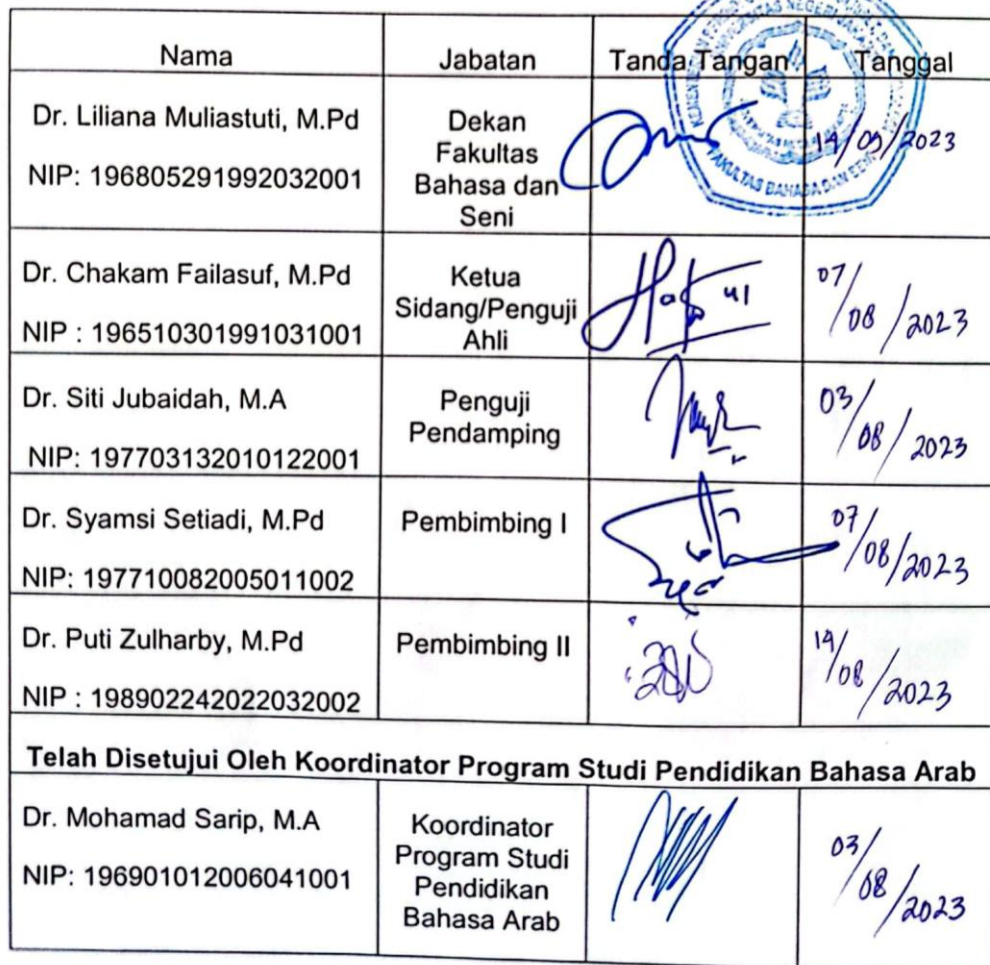 Nama Jabatan Tanda Tangan Tanggal
Dr. Liliana Muliastuti, M.Pd
NIP: 196805291992032001
Dekan
Fakultas
Bahasa dan
Seni
14/09/2023
FAKULTAS BAHASA DAN SENI
Dr. Chakam Failasuf, M.Pd
NIP : 196510301991031001
Ketua
Sidang/Penguji
Ahli
07/08/2023
Dr. Siti Jubaidah, M.A
NIP: 197703132010122001
Penguji
Pendamping
03/08/2023
Dr. Syamsi Setiadi, M.Pd
NIP: 197710082005011002
Pembimbing I
07/08/2023
Dr. Puti Zulharby, M.Pd
NIP : 198902242022032002
Pembimbing II
14/08/2023
Telah Disetujui Oleh Koordinator Program Studi Pendidikan Bahasa Arab
Dr. Mohamad Sarip, M.A
NIP: 196901012006041001
Koordinator
Program Studi
Pendidikan
Bahasa Arab
03/08/2023